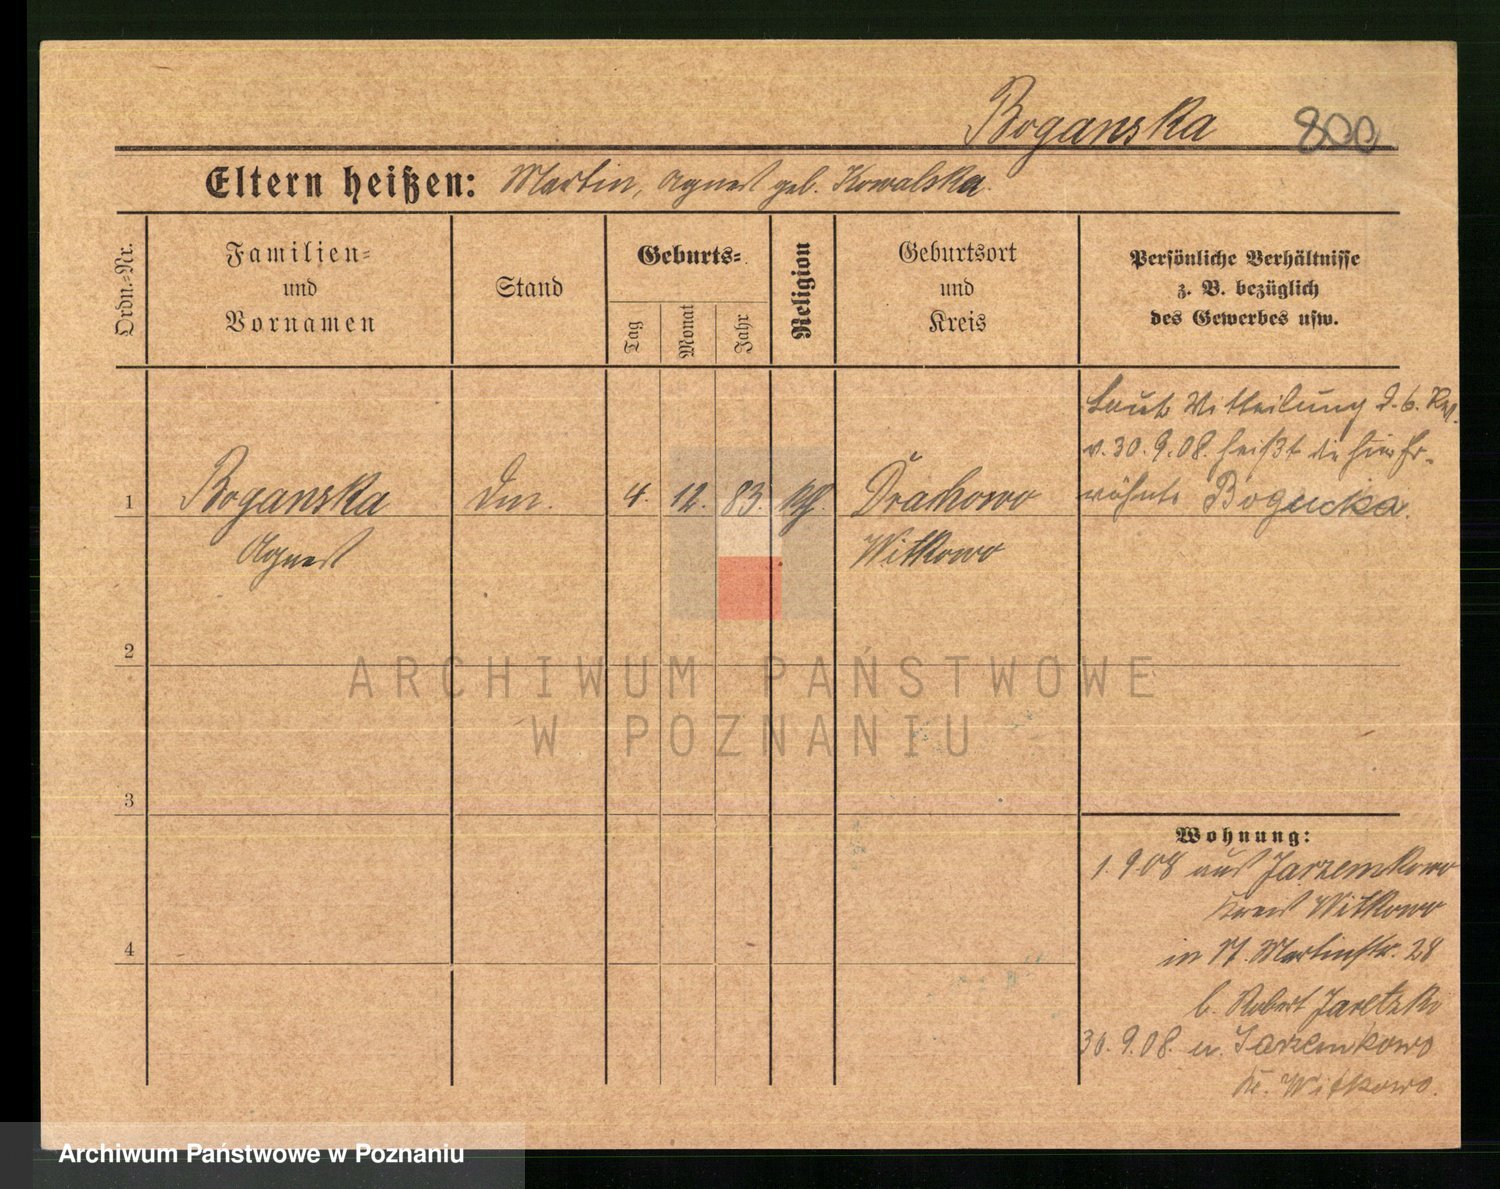 Boganska 800
Eltern heißen: Martin, Agnes geb. Kowalska.
Ordn.-Nr.
Familien-
und
Vornamen
Stand
Geburts-
Tag
Monat
Jahr
Religion
Geburtsort
und
Kreis
Persönliche Verhältnisse
z. B. bezüglich
des Gewerbes usw.
1 Boganska Dm. 4. 12. 83. kh. Drachowo
Agnes Witkowo
Laut Mitteilung d. 6. Rev.
v. 30.9.08. heißt die hier Er-
wähnte Bogucka.
2
3
4
Wohnung:
1.9.08 aus Jarzemkowo
Kreis Witkowo
in St. Martinstr. 28
b. Robert Jaretzki
30.9.08. n. Jarzemkowo
Kr. Witkowo.
ARCHIWUM PAŃSTWOWE
W POZNANIU
Archiwum Państwowe w Poznaniu